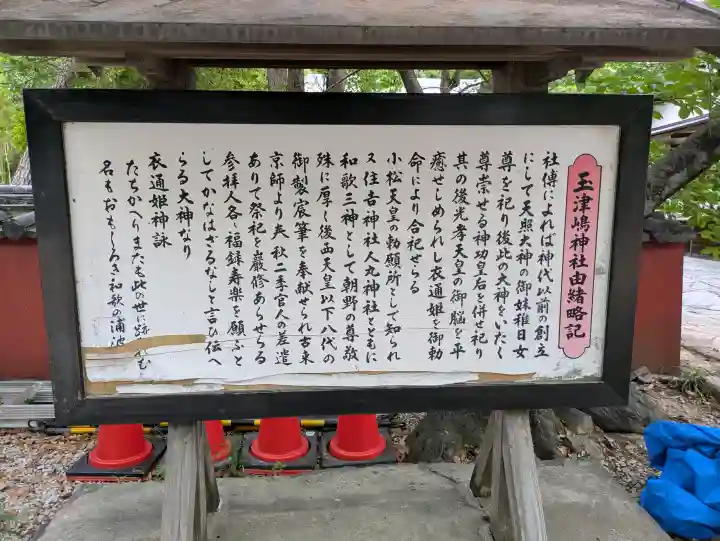 玉津嶋神社由緒略記
社傳によれば神代以前の創立
にして天照大神の御妹稚日女
尊を祀り後此の大神をいたく
尊崇せる神功皇后を併せ祀り
其の後光孝天皇の御脳を平
癒せしめられし衣通姫を御勅
命により合祀せらる
小松天皇の勅願所として知られ
又住吉神社人丸神社とともに
和歌三神として朝野の尊敬
殊に厚し後西天皇以下八代の
御製宸筆を奉献せられ古来
京師より春秋二季官人の差遣
ありて祭祀を厳修あらせらる
参拝人各〻福録寿楽を願ふと
してかなはざるなしと言ひ伝へ
らる大神なり
衣通姫神詠
たちかへりまたも此の世に跡むむ
名もおもしろき和歌の浦波